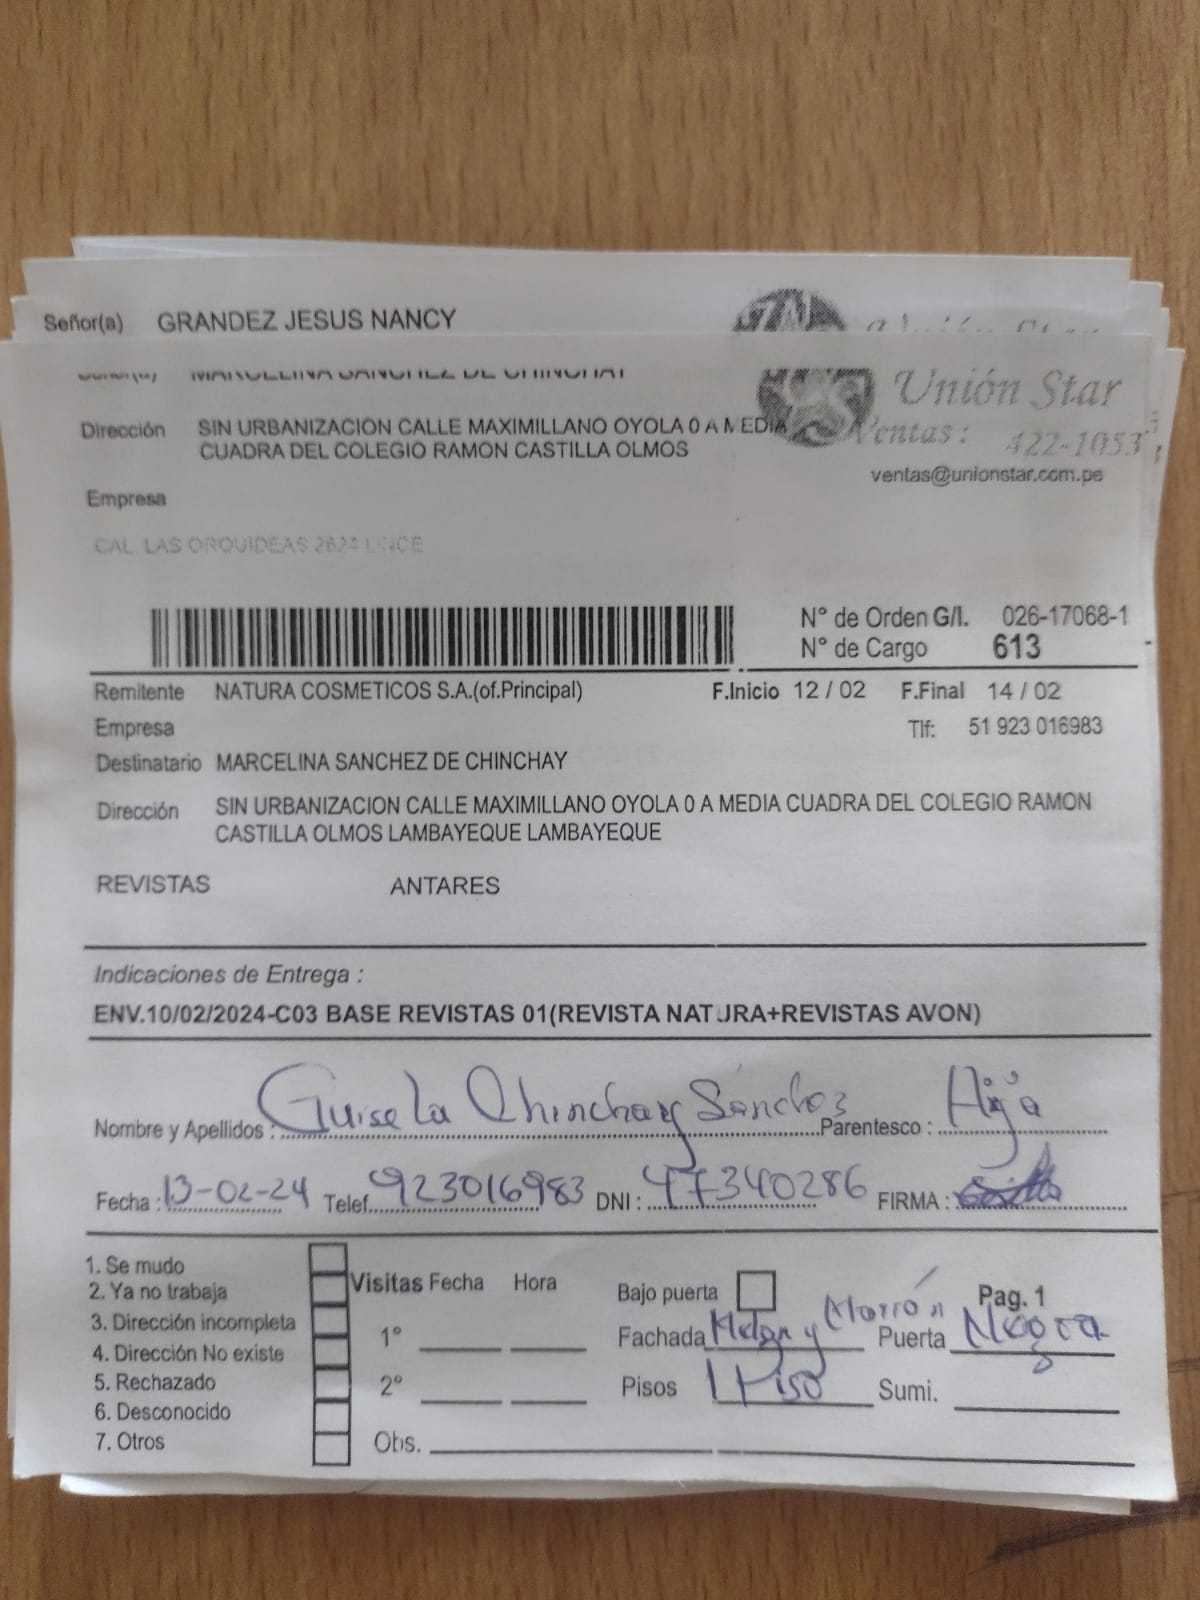 Señor(a) GRANDEZ JESUS NANCY
Señor(a) MARCELINA SANCHEZ DE CHINCHAY
Unión Star
Dirección SIN URBANIZACION CALLE MAXIMILLANO OYOLA 0 A MEDIA
CUADRA DEL COLEGIO RAMON CASTILLA OLMOS
Ventas: 422-1053
ventas@unionstar.com.pe
Empresa
CAL. LAS ORQUIDEAS 2624 LINCE
N° de Orden G/I. 026-17068-1
N° de Cargo 613
Remitente NATURA COSMETICOS S.A.(of.Principal) F.Inicio 12 / 02 F.Final 14 / 02
Empresa Tlf: 51 923 016983
Destinatario MARCELINA SANCHEZ DE CHINCHAY
Dirección SIN URBANIZACION CALLE MAXIMILLANO OYOLA 0 A MEDIA CUADRA DEL COLEGIO RAMON
CASTILLA OLMOS LAMBAYEQUE LAMBAYEQUE
REVISTAS ANTARES
Indicaciones de Entrega :
ENV.10/02/2024-C03 BASE REVISTAS 01(REVISTA NATURA+REVISTAS AVON)
Nombre y Apellidos : Guisela Chinchay Sánchez Parentesco : Hija
Fecha : 13-02-24 Telef. 923016983 DNI : 47340286 FIRMA :
1. Se mudo
2. Ya no trabaja
3. Dirección incompleta
4. Dirección No existe
5. Rechazado
6. Desconocido
7. Otros
Visitas Fecha Hora
1°
2°
Obs.
Bajo puerta Pag. 1
Fachada Melon y Marrón Puerta Negra
Pisos 1 Piso Sumi.